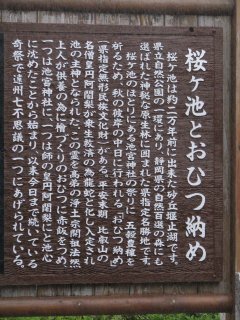 桜ヶ池とおひつ納め
桜ヶ池は約二万年前に出来た砂丘堰止湖です。
県立自然公園の一環にあり、静岡県の自然百選の森にも
選ばれた神秘な原生林に囲まれた県指定名勝地です。
桜ヶ池のほとりにある池宮神社の祭りに、五穀豊穣を
祈るため、秋の彼岸の中日に行われる「おひつ納め」
県指定無形民俗文化財」がある。平安末期、比叡山の
名僧皇円阿闍梨が衆生救済の為龍蛇と化し入定され
池の主神となられた。この霊を高弟の浄土宗開祖法然
上人が供養の為に檜づくりのおひつに赤飯をつめ
一つは池宮神社に、一つは師の皇円阿闍梨にと池心
に沈めたことから始まり、以来今日まで続いている
奇祭で遠州七不思議の一つにあげられている。